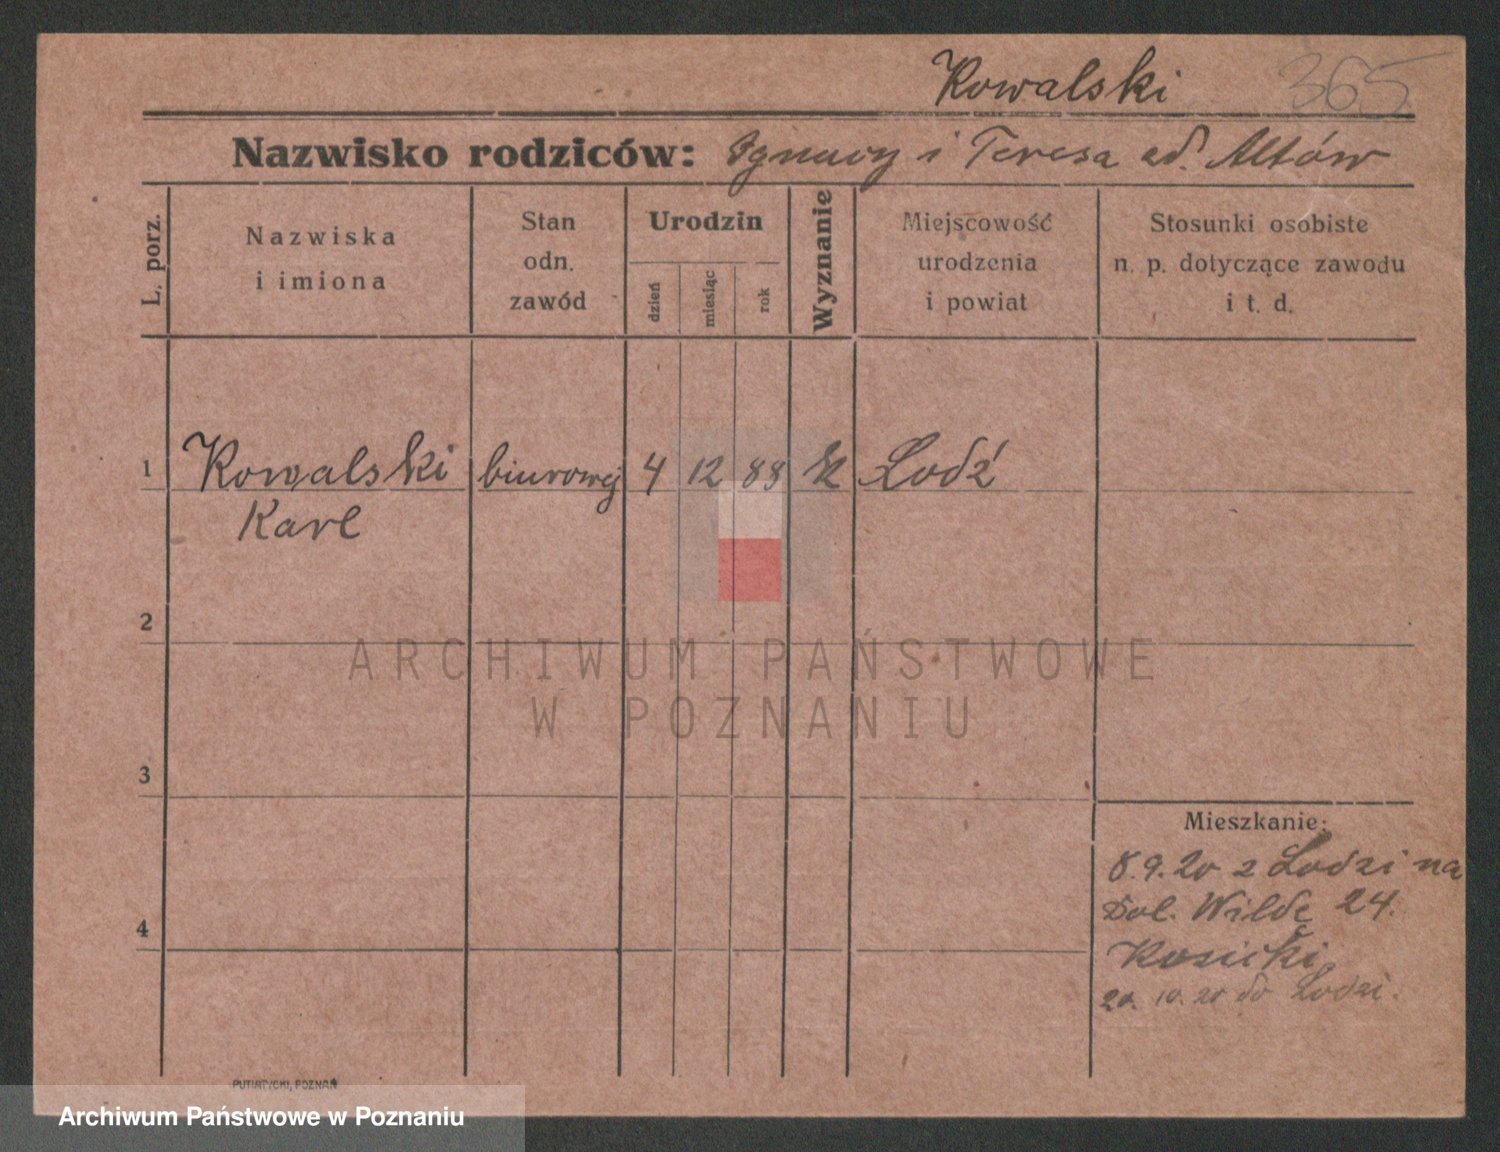 Kowalski 365
Nazwisko rodziców: Ignacy i Teresa od. Altów
L. porz.
Nazwiska
i imiona
Stan
odn.
zawód
Urodzin
dzień
miesiąc
rok
Wyznanie
Miejscowość
urodzenia
i powiat
Stosunki osobiste
n. p. dotyczące zawodu
i t. d.
1 Kowalski biurowej 4 12 88 k Łodź
Karl
2
ARCHIWUM PAŃSTWOWE
W POZNANIU
3
Mieszkanie:
8.9.20 z Łodzi na
Dol. Wilde 24.
4
Kosicki
20. 10. 20 do Łodzi.
PUTIATYCKI, POZNAŃ
Archiwum Państwowe w Poznaniu